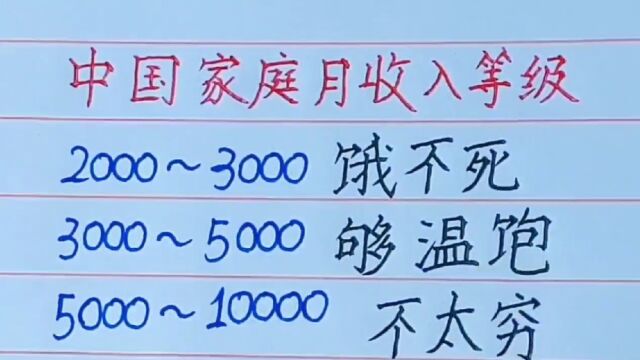 中国家庭月收入等级
2000～3000 饿不死
3000～5000 够温饱
5000～10000 不太穷